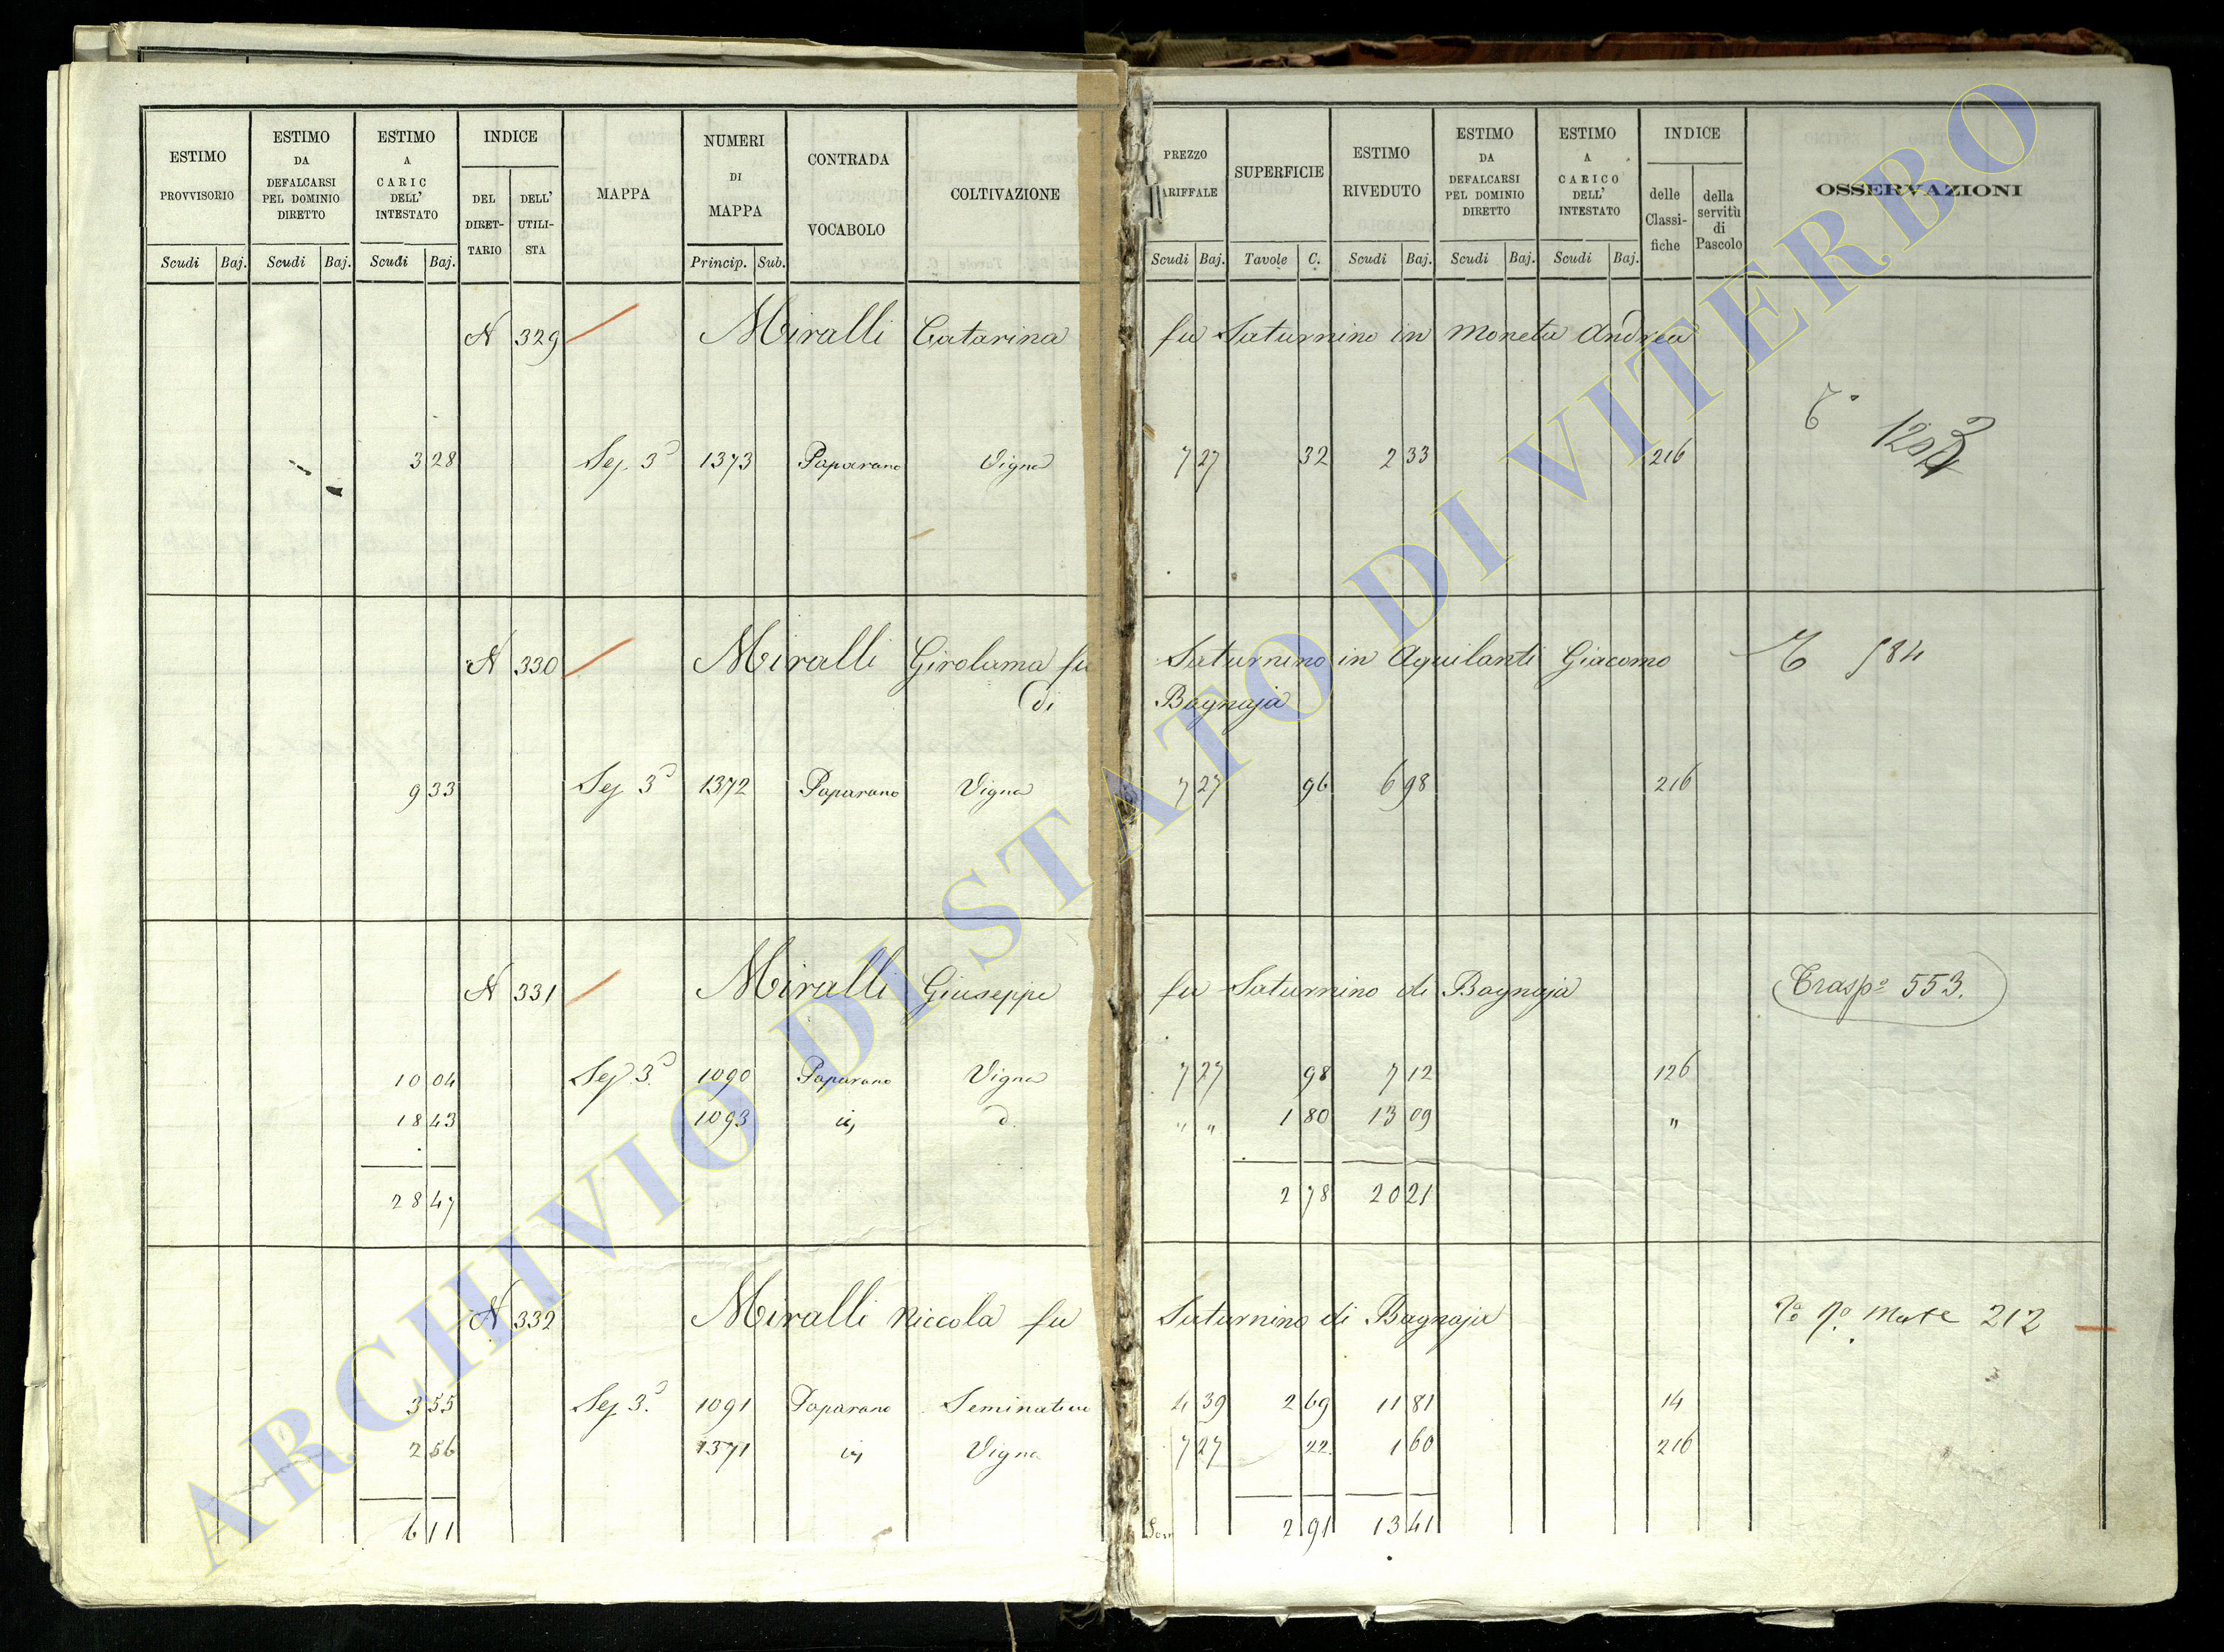 ESTIMO PROVVISORIO Scudi Baj.
ESTIMO DA DEFALCARSI PEL DOMINIO DIRETTO Scudi Baj.
ESTIMO A CARIC DELL' INTESTATO Scudi Baj.
INDICE DEL DIRET- TARIO DELL' UTILI- STA
MAPPA
NUMERI DI MAPPA Princip. Sub.
CONTRADA VOCABOLO
COLTIVAZIONE
PREZZO ARIFFALE Scudi Baj.
SUPERFICIE Tavole C.
ESTIMO RIVEDUTO Scudi Baj.
ESTIMO DA DEFALCARSI PEL DOMINIO DIRETTO Scudi Baj.
ESTIMO A CARICO DELL' INTESTATO Scudi Baj.
INDICE delle Classi- fiche della servitù di Pascolo
OSSERVAZIONI
N 329 Miralli Catarina fu Saturnino in Moneta Andrea
3 28 Sez. 3ª 1373 Paparano Vigna 7 27 32 2 33 216
N 330 Miralli Girolama fu Saturnino in Aquilanti Giacomo 584
di Bagnaja
9 33 Sez 3ª 1372 Paparano Vigna 7 27 96 6 98 216
N 331 Miralli Giuseppe fu Saturnino di Bagnaja Traspº 553.
10 04 Sez. 3ª 1090 Paparano Vigna 7 27 98 7 12 126
18 43 1093 id. d. " " 1 80 13 09 "
28 47 2 78 20 21
N 332 Miralli Niccola fu Saturnino di Bagnaja 212
3 55 Sez 3ª 1091 Paparano Seminativo 4 39 2 69 11 81 14
2 56 1371 id. Vigna 7 27 22 1 60 216
6 11 2 91 13 41
ARCHIVIO DI STATO DI VITERBO